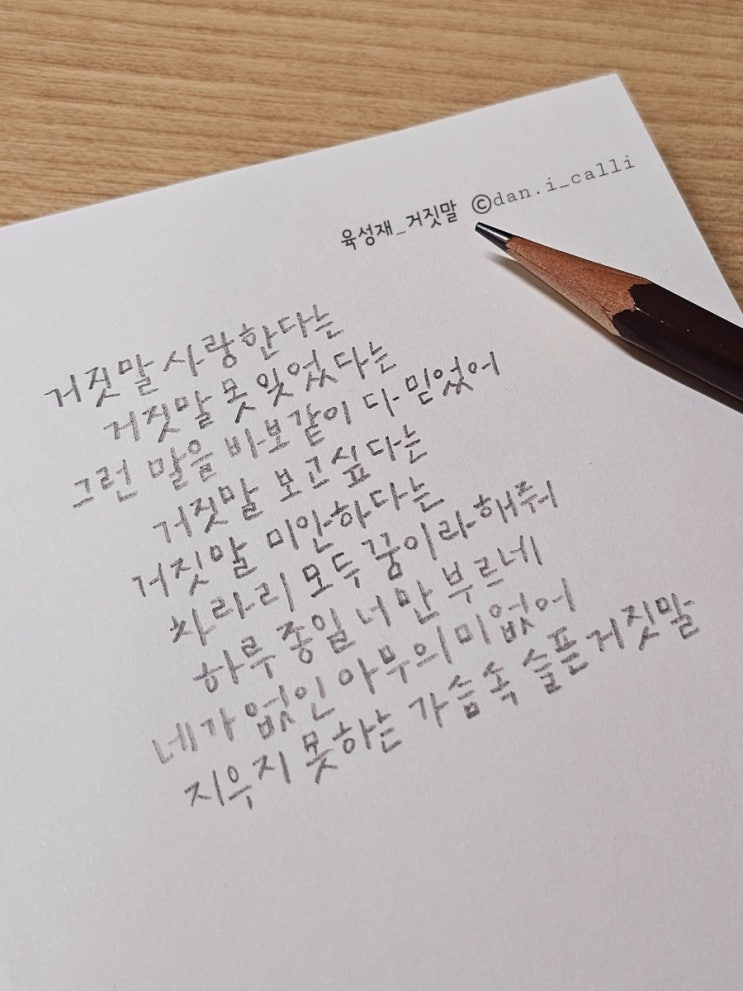 육성재_거짓말 ©dan.i_calli
거짓말 사랑한다는
거짓말 못 잊었다는
그런 말을 바보같이 다 믿었어
거짓말 보고싶다는
거짓말 미안하다는
차라리 모두 꿈이라 해줘
하루 종일 너만 부르네
네가 없인 아무 의미 없어
지우지 못하는 가슴속 슬픈 거짓말